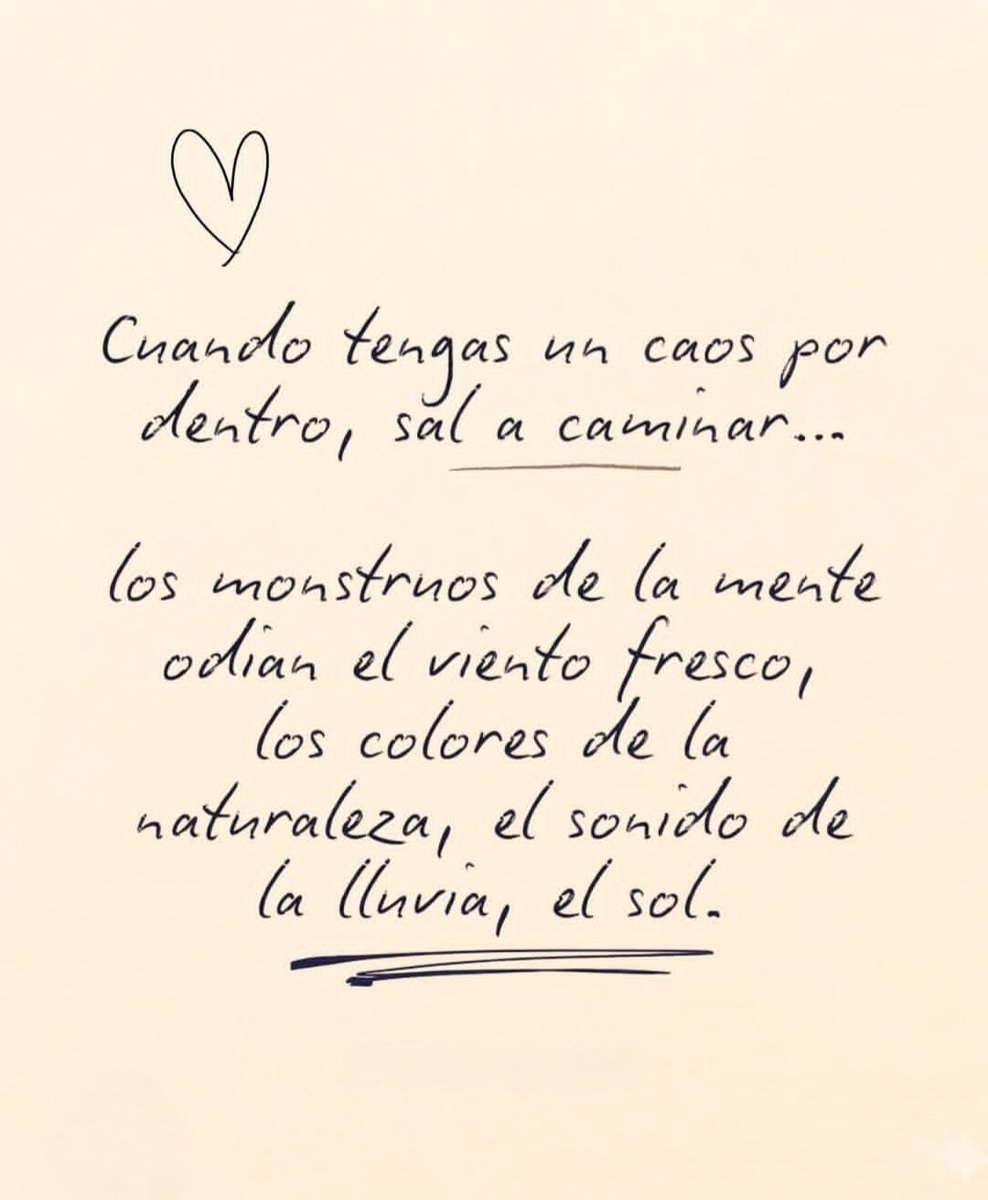 Cuando tengas un caos por
dentro, sal a caminar...
los monstruos de la mente
odian el viento fresco,
los colores de la
naturaleza, el sonido de
la lluvia, el sol.